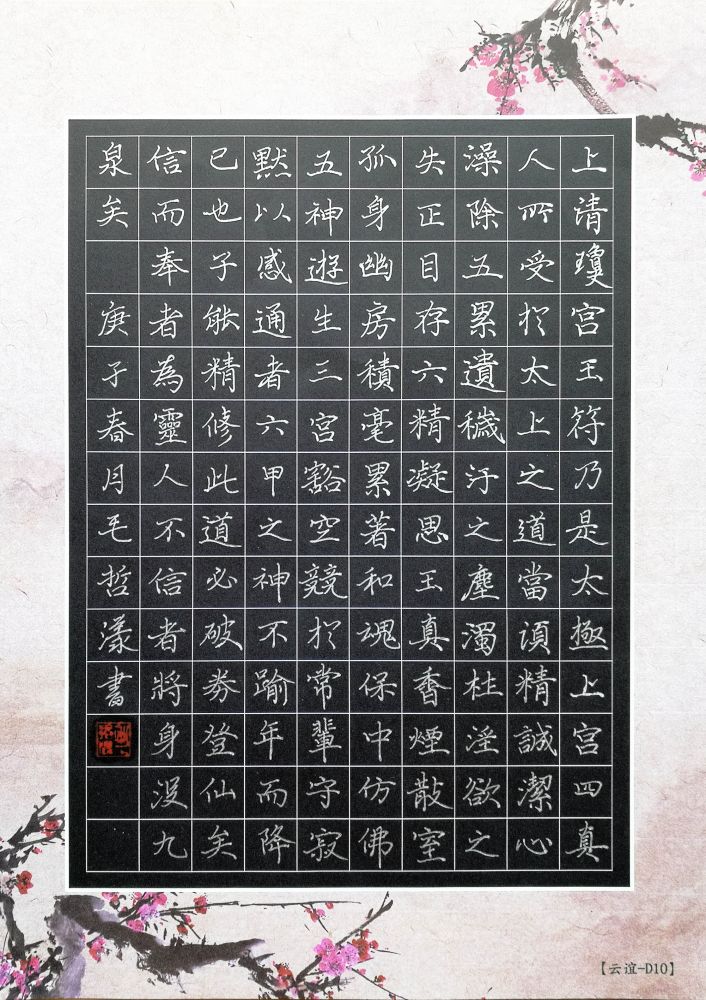 上清瓊宮玉符乃是太極上宮四真
人所受於太上之道當須精誠潔心
澡除五累遺穢汙之塵濁杜淫欲之
失正目存六精凝思玉真香煙散室
孤身幽房積毫累著和魂保中仿佛
五神遊生三宮豁空競於常輩守寂
默以感通者六甲之神不踰年而降
已也子能精修此道必破券登仙矣
信而奉者為靈人不信者將身没九
泉矣 庚子春月毛哲漾書
【云谊-D10】